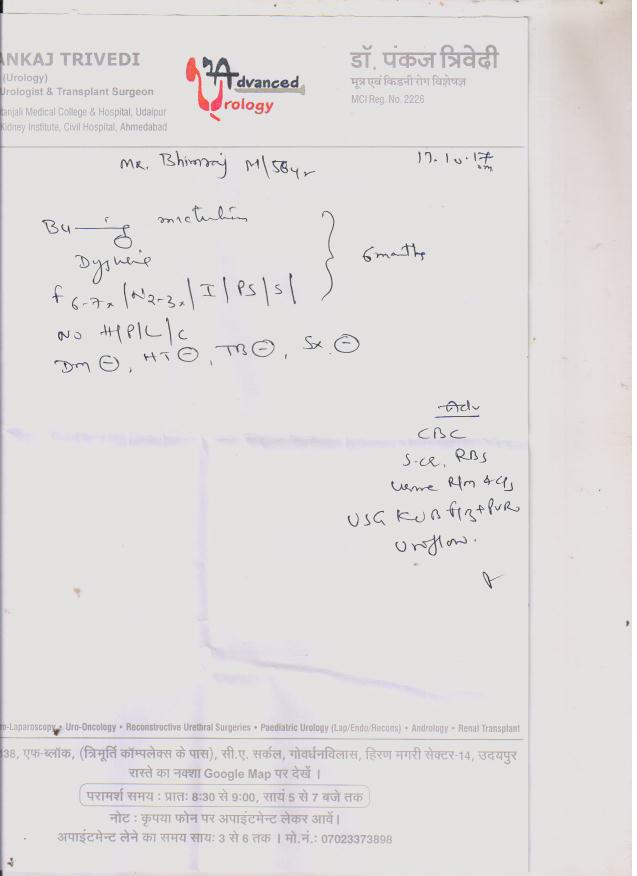 ANKAJ TRIVEDI
(Urology)
Urologist & Transplant Surgeon
tanjali Medical College & Hospital, Udaipur
Kidney Institute, Civil Hospital, Ahmedabad
Advanced
Urology
डॉ. पंकज त्रिवेदी
मूत्र एवं किडनी रोग विशेषज्ञ
MCI Reg. No. 2226
Mr. Bhimraj M/58yr
17.10.17
Burning micturition
f 6-7x | N 2-3x | I | PS | S |
6 months
No H/P/L/C
Dm ⊖, HT ⊖, TB ⊖, Sx. ⊖
Adv
CBC
S.cr, RBS
urine R/m & C/s
USG KUB + PVR
Uroflow.
ro-Laparoscopy • Uro-Oncology • Reconstructive Urethral Surgeries • Paediatric Urology (Lap/Endo/Recons) • Andrology • Renal Transplant
338, एफ-ब्लॉक, (त्रिमूर्ति कॉम्पलेक्स के पास), सी.ए. सर्कल, गोवर्धनविलास, हिरण मगरी सेक्टर-14, उदयपुर
रास्ते का नक्शा Google Map पर देखें ।
परामर्श समय : प्रातः 8:30 से 9:00, सायं 5 से 7 बजे तक
नोट : कृपया फोन पर अपाइंटमेन्ट लेकर आवें।
अपाइंटमेन्ट लेने का समय सायः 3 से 6 तक । मो.नं.: 07023373898